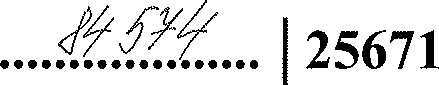 84574 | 25671